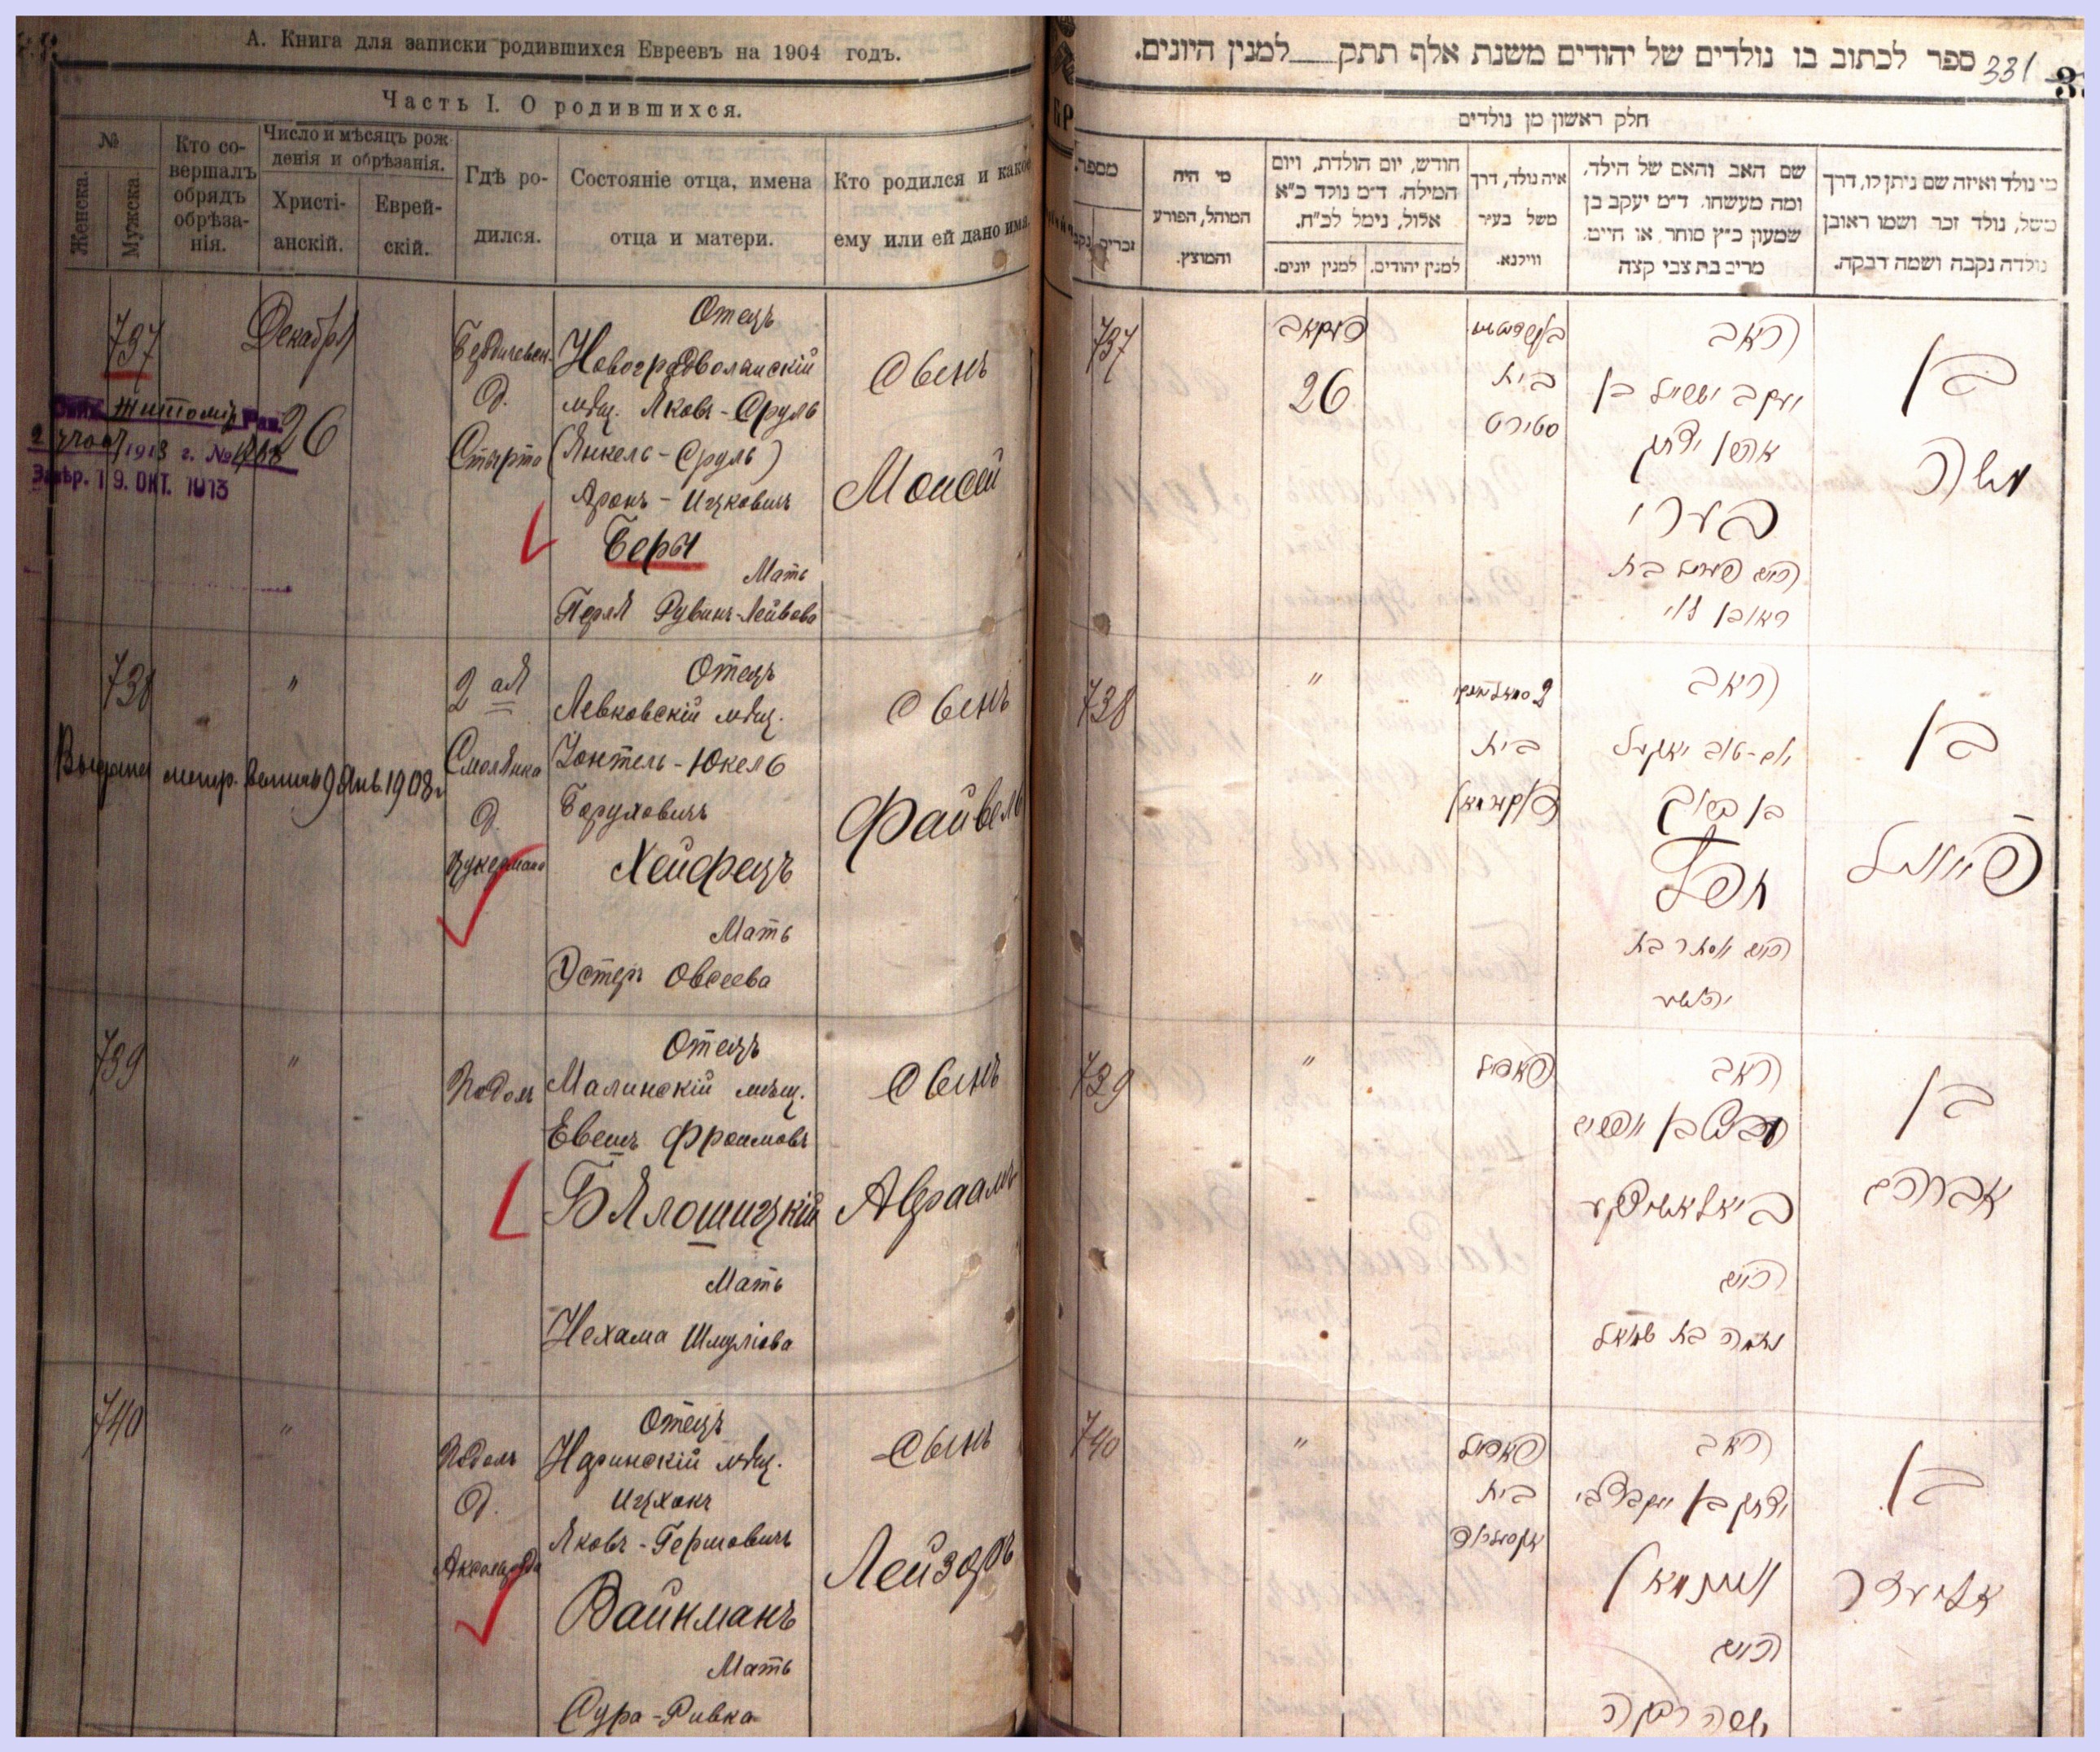 А. Книга для записки родившихся Евреевъ на 1904 годъ.
Часть I. О родившихся.
№
Женска.
Мужска.
Кто со-
вершалъ
обрядъ
обрѣза-
нія.
Число и мѣсяцъ рож
денія и обрѣзанія.
Христі-
анскій.
Еврей-
скій.
Гдѣ ро-
дился.
Состояніе отца, имена
отца и матери.
Кто родился и какое
ему или ей дано имя.
737
Декабря
26
Житомір
1913 г. №
19. ОКТ. 1913
Бердичевск.
д.
Стырта
Отецъ
Новоградволынскій
мѣщ. Яковъ-Сруль
(Янкель-Сруль)
Аронъ-Ицковичъ
Беры
Мать
Перля Рувинъ-Лейбова
Сынъ
Моисей
738
"
2 ая
Смолянка
д.
Цукермана
Отецъ
Левковскій мѣщ.
Юкель
Боруховичъ
Хейфецъ
Мать
Эстеръ Овсеева
Сынъ
Файвель
Выдана метр. 9 Янв. 1908 г.
739
"
Подолъ
Отецъ
Малинскій мѣщ.
Евешъ Фроимовъ
Бялошицкій
Мать
Нехама Шмуліова
Сынъ
Авраамъ
740
"
Подолъ
д.
Аксельрода
Отецъ
Наринскій мѣщ.
Ицхокъ
Яковъ-Гершовичъ
Вайнманъ
Мать
Сура-Ривка
Сынъ
Лейзоръ
ספר לכתוב בו נולדים של יהודים משנת אלף תתק למנין היונים.
331
חלק ראשון מן נולדים
מספר.
זכרים
נקב
מי היה
המוהל, הפורע
והמוצץ.
חודש, יום הולדת, ויום
המילה. ד"מ נולד כ"א
אלול, נימל לכ"ח.
למנין יונים.
למנין יהודים.
איה נולד, דרך
משל בעיר
ווילנא.
שם האב והאם של הילד,
ומה מעשהו. ד"מ יעקב בן
שמעון כ"ץ סוחר או חייט.
מרים בת צבי קצה
מי נולד ואיזה שם ניתן לו, דרך
משל, נולד זכר ושמו ראובן
נולדה נקבה ושמה דבקה.
737
דעקאב
26
בית
סטירט
האב
יעקב ישראל בן
אהרן יצחק
בערי
האם פערל בת
ראובן לוי
בן
משה
738
"
בית
צוקערמאן
האב
יום-טוב יאקעל
בן ברוך
חפץ
האם אסתר בת
יהושע
בן
פייוועל
739
"
פאדאל
האב
בן אפרים
ביאלאשיצקע
האם
נחמה בת שמואל
בן
אברהם
740
"
פאדאל
בית
אקסעלראד
האב
יצחק בן יעקב צבי
וויינמאן
האם
שרה רבקה
בן
אליעזר